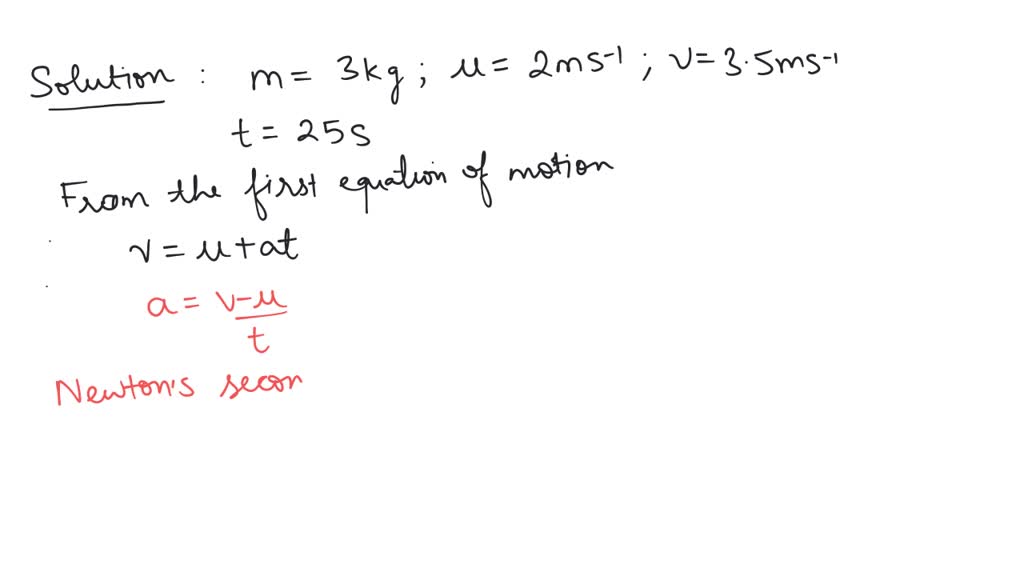 Solution : m = 3kg ; u = 2ms⁻¹ ; v = 3.5ms⁻¹
t = 25s
From the first equation of motion
v = u + at
a = v-u
t
Newton's secon